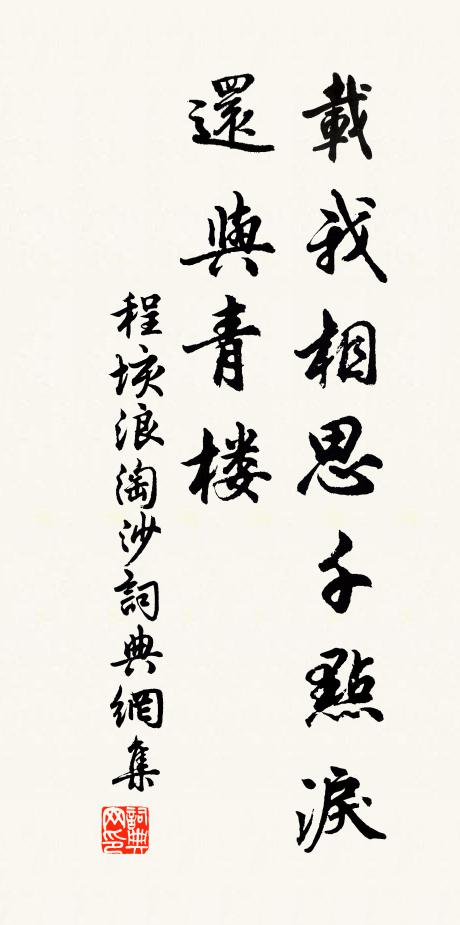 載我相思千點淚
還與青楼
程垓浪淘沙詞典網集
詞典網印